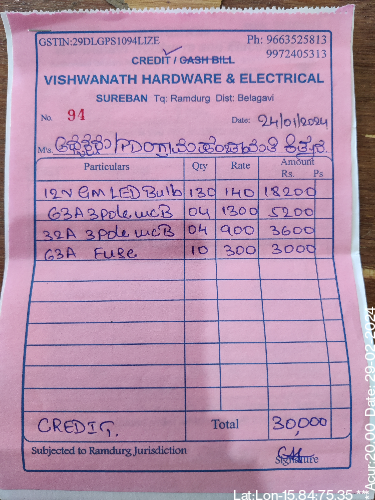 GSTIN:29DLGPS1094LIZE Ph: 9663525813
9972405313
CREDIT / CASH BILL
VISHWANATH HARDWARE & ELECTRICAL
SUREBAN Tq: Ramdurg Dist: Belagavi
No. 94 Date: 24/01/2024
M/s. / PDO
Particulars Qty Rate Amount
Rs. Ps
12V GM LED Bulb 130 140 18200
63A 3Pole MCB 04 1300 5200
32A 3Pole MCB 04 900 3600
63A Fuse 10 300 3000
CREDIT. Total 30,000
Subjected to Ramdurg Jurisdiction Signature
Lat:Lon-15.84:75.35 ***
Acur:20.00 Date: 29-02-2024